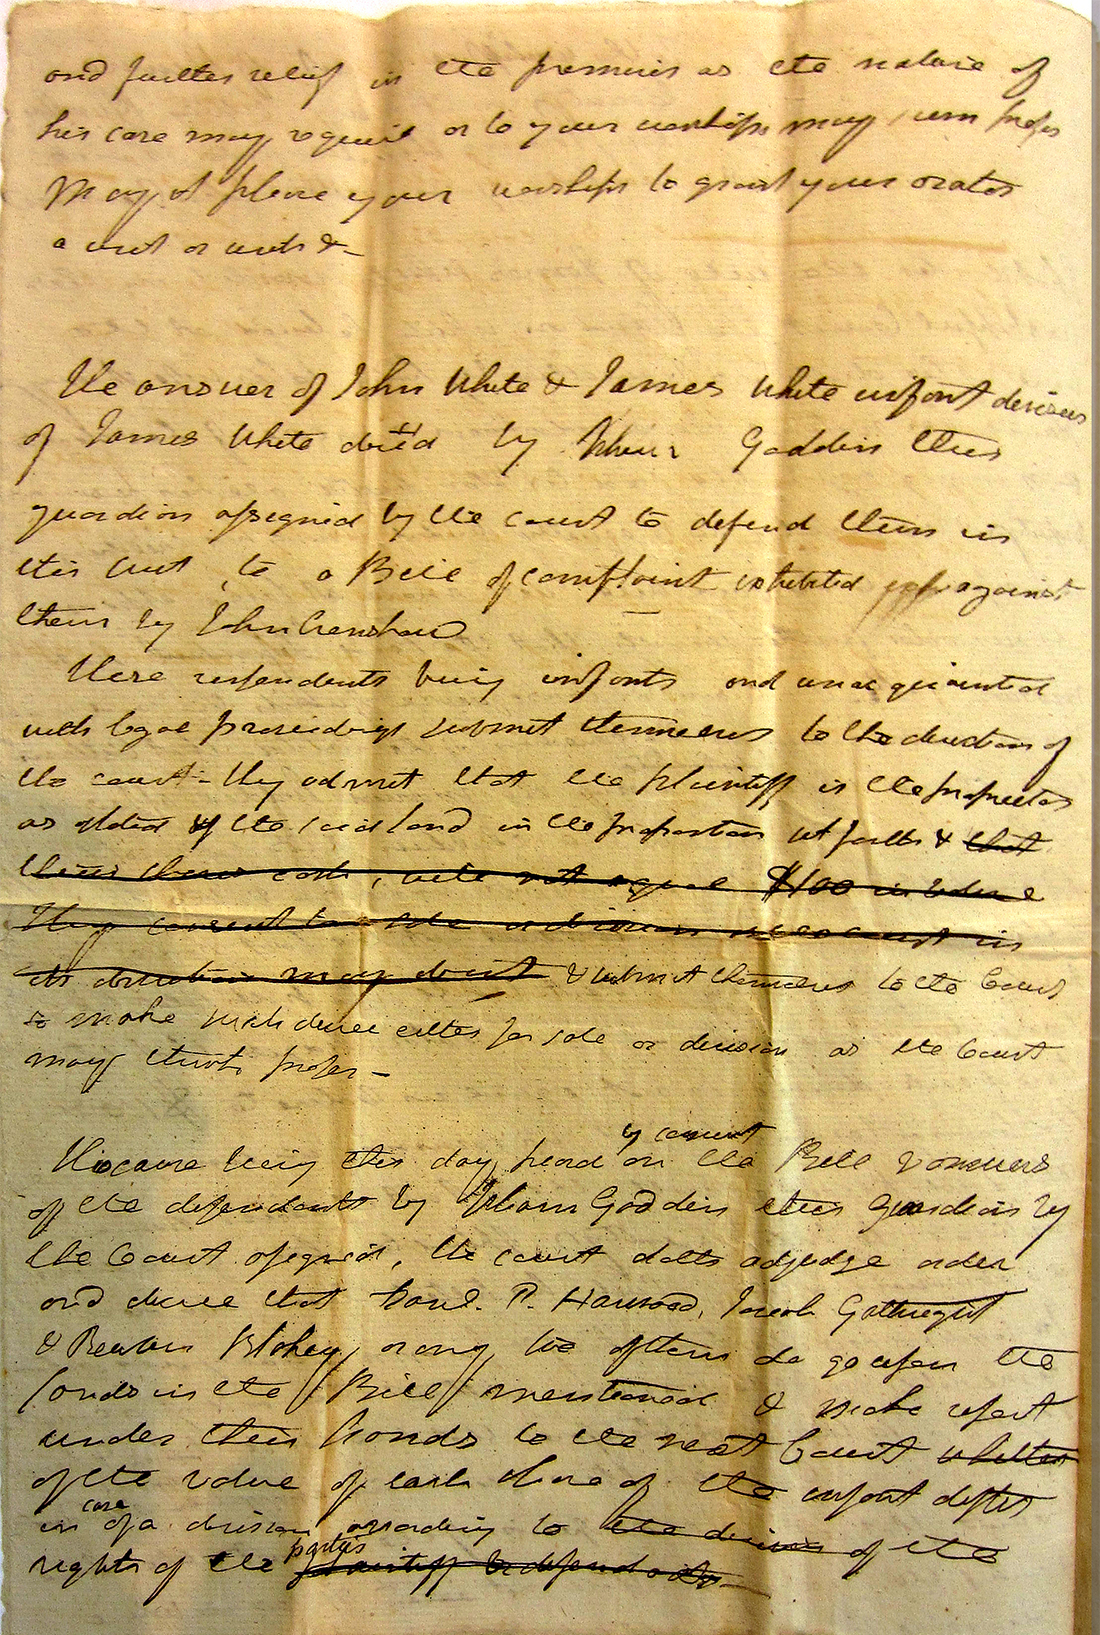 and further relief in the premises as the nature of
his case may require or to your worships may seem proper
May it please your worships to grant your orator
a writ or writs &c
The answer of John White & James White infant devisees
of James White dec'd by Gaddin their
guardian assigned by the court to defend them in
this suit, to a Bill of complaint exhibited against
them by John Crenshaw
These respondents being infants and unacquainted
with legal proceedings submit themselves to the direction of
the court - they admit that the plaintiff is the proprietor
as stated of the said land in the proportion set forth & that
their shares each, will not equal $100 in value
They consent to a sale or division as the court in
its discretion may direct & submit themselves to the Court
to make such decree either for sale or division as the Court
may think proper -
by consent
This cause being this day heard on the Bill & answers
of the defendants by Gaddin their guardian by
the Court assigned, the court doth adjudge order
and decree that P. Harwood, Joseph Gathright
& Reuben Blakey, or any two of them do go upon the
lands in the Bill mentioned & make report
under their hands to the next Court whether
of the value of each share of the infant defts
case
in of a division according to the division of the
parties
rights of the plaintiff & defendants -